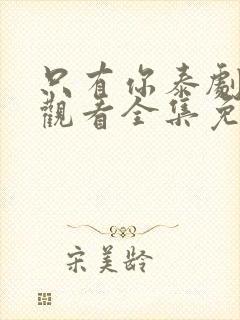 只有你泰劇
觀看全集免
宋美齡